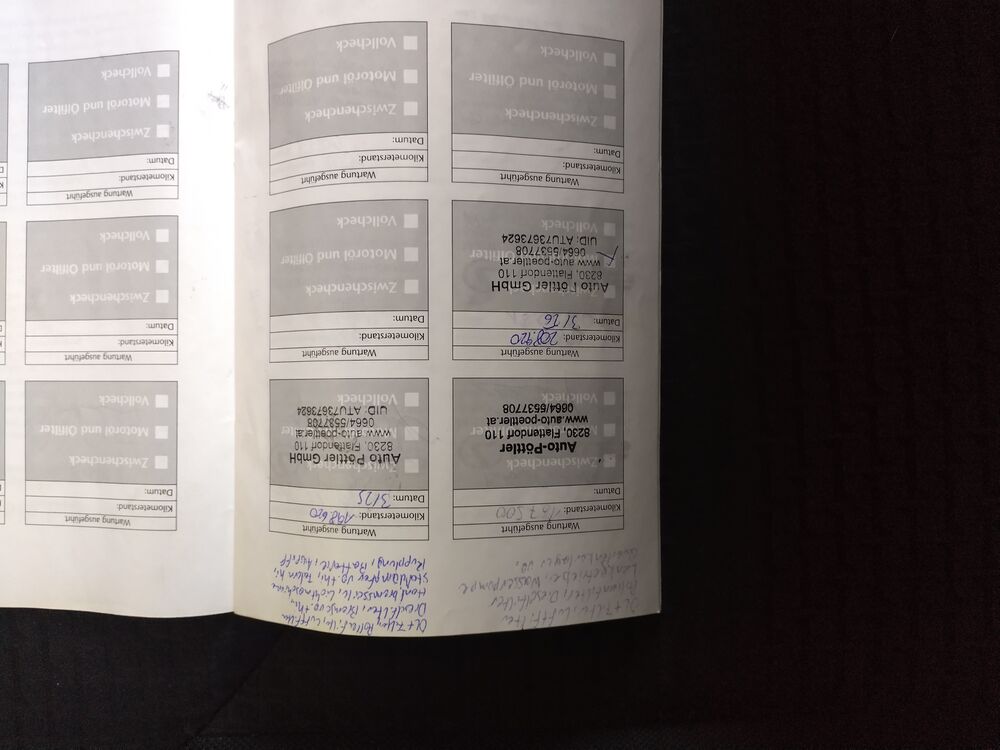 Öl + Filter, Luftfilter
Pollenfilter, Dieselfilter
Lenkgetriebe, Wasserpumpe
Querlenkerlager vo.
Wartung ausgeführt
Kilometerstand: 187500
Datum:
Zwischencheck
Auto-Pöttler
8230, Flattendorf 110
www.auto-poettler.at
0664/5537708
Vollcheck
Öl + Filter, Pollenfilter, Luftfilter
Dieselfilter, Bremse vo.+hi.,
Handbremsseile, Lichtmaschine
vo. + hi, Federn hi,
Kupplung, Batterie, Auspuff
Wartung ausgeführt
Kilometerstand: 198620
Datum: 3/25
Zwischencheck
Auto Pöttler GmbH
8230, Flattendorf 110
www.auto-poettler.at
0664/5537708
UID: ATU73673624
Motoröl und Ölfilter
Vollcheck
Wartung ausgeführt
Kilometerstand:
Datum:
Zwischencheck
Motoröl und Ölfilter
Vollcheck
Wartung ausgeführt
Kilometerstand: 208.920
Datum: 3/26
Auto Pöttler GmbH
8230, Flattendorf 110
www.auto-poettler.at
0664/5537708
UID: ATU73673624
Vollcheck
Wartung ausgeführt
Kilometerstand:
Datum:
Zwischencheck
Motoröl und Ölfilter
Vollcheck
Wartung ausgeführt
Kilometerstand:
Datum:
Zwischencheck
Motoröl und Ölfilter
Vollcheck
Wartung ausgeführt
Kilometerstand:
Datum:
Zwischencheck
Motoröl und Ölfilter
Vollcheck
Wartung ausgeführt
Kilometerstand:
Datum:
Zwischencheck
Motoröl und Ölfilter
Vollcheck
Wartung ausgeführt
Kilometerstand:
Datum:
Zwischencheck
Motoröl und Ölfilter
Vollcheck